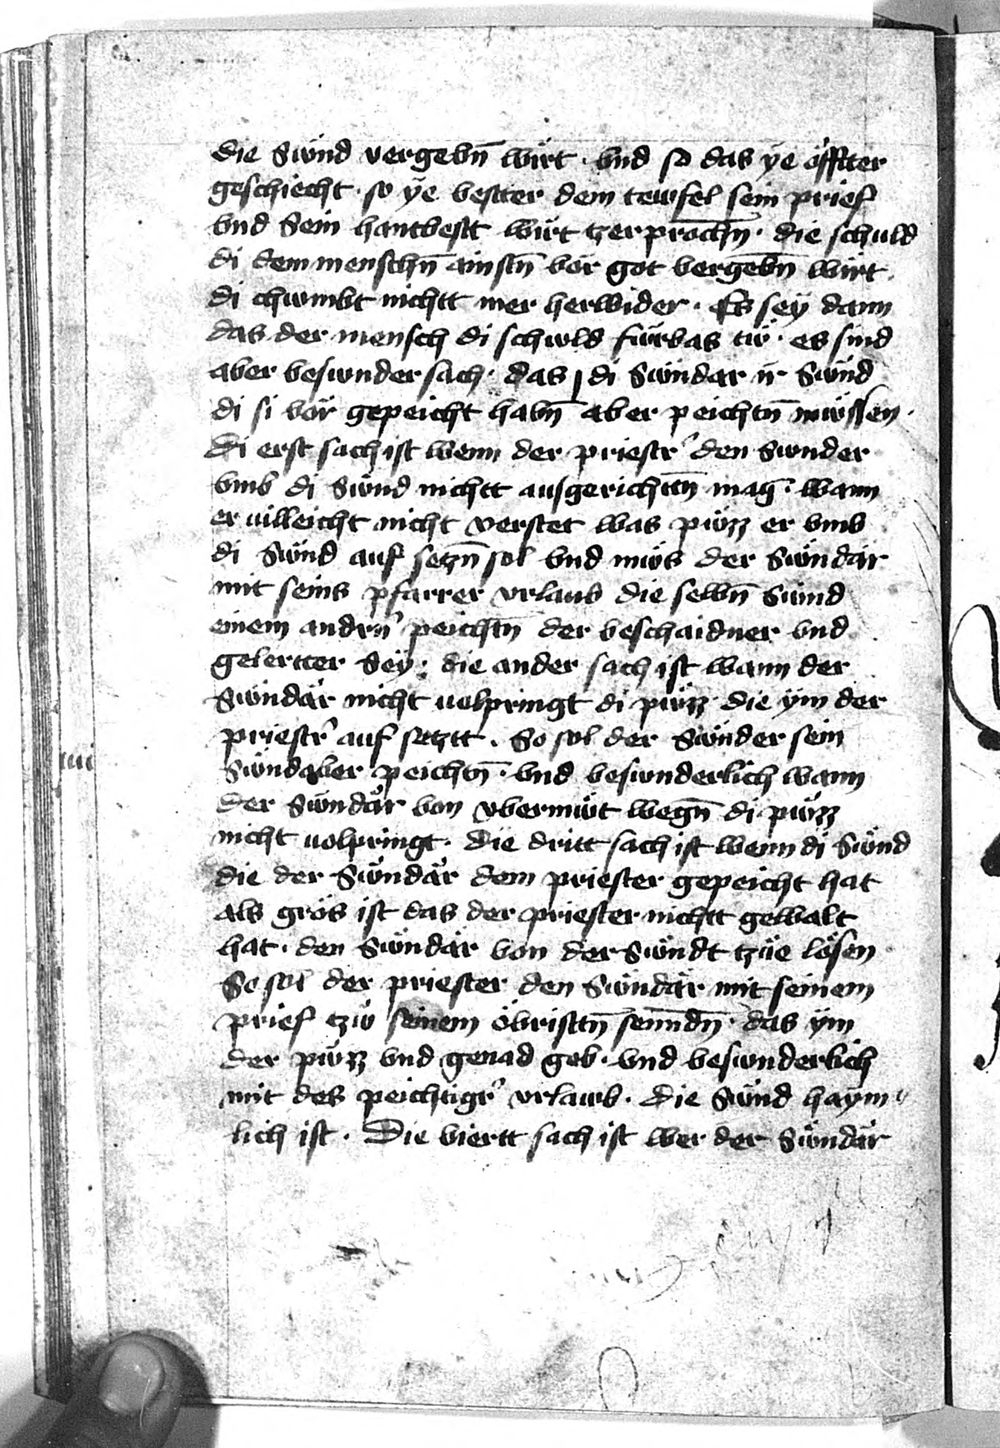 die sünd vergebn̄ würt · vnd so das ye öffter
geschiecht · so ye vestter dem tewfel sein prief
vnd sein hantvestt würt tzerprochn̄ · die schuld
di dem menschn̄ ainstn̄ vor got vergebn̄ würt ·
di chwmbt nichtt mer herwider · Es sey dann
das der mensch di schwld fürbas tü · es sind
aber beswnder sach · das di Sündar ir Sünd
di si vor gepeicht habn̄ aber peichtn̄ müssen ·
Di erst sach ist wenn der priestr̄ den Swnder
vmb di Sünd nichtt ausgerichttn̄ mag · wann
er villeicht nicht verstet was püzz er vmb
di Sünd auf setzn̄ sol vnd müs der Sündär
mit seins pfarrer vrlaub die selbn̄ Sünd
einem andrn̄ peichtn̄ der beschaidner vnd
gelertter Sey · die ander sach ist wann der
Sündär nicht volpringt di püzz die ym der
priestr̄ auf setztt · So sol der Sünder sein
Sünd aber peichtn̄ · vnd beswnderlich wann
der Sündär von vbermüt wegn̄ di püzz
nicht volpringt · Die dritt sach ist wenn di Sünd
die der Sündär dem priester gepeicht hat
als gros ist das der priester nichtt gewalt
hat · den Sündär von der Sündt tzüe lösen
So sol der priester den Sündär mit seinem
prief tzü seinem öbristtn̄ senndn̄ · das ym
der püzz vnd genad geb · vnd beswnderlich
mit des peichtigr̄ vrlawb · Die Sünd haym
lich ist · Die viertt sach ist wer der Sündär